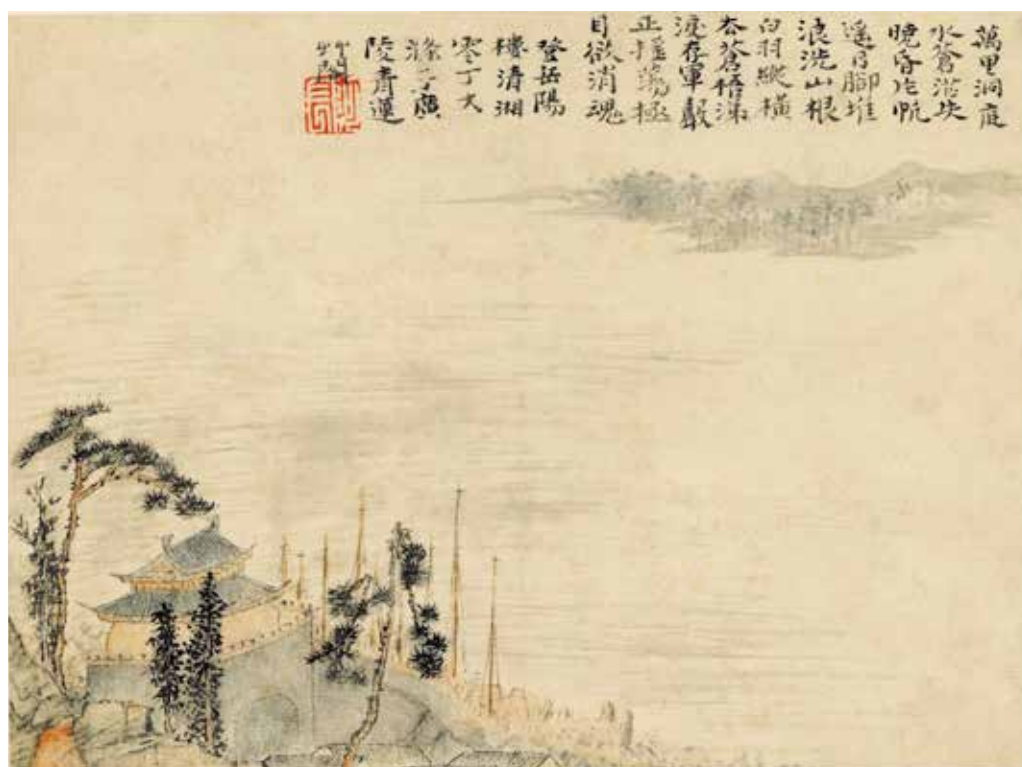 萬里洞庭
水蒼茫失
曉昏片帆
遙日腳堆
浪洗山根
白羽縱橫
去蒼梧涕
淚存軍聲
正搖蕩極
目欲消魂
登岳陽
樓清湘
零丁大
滌子廣
陵